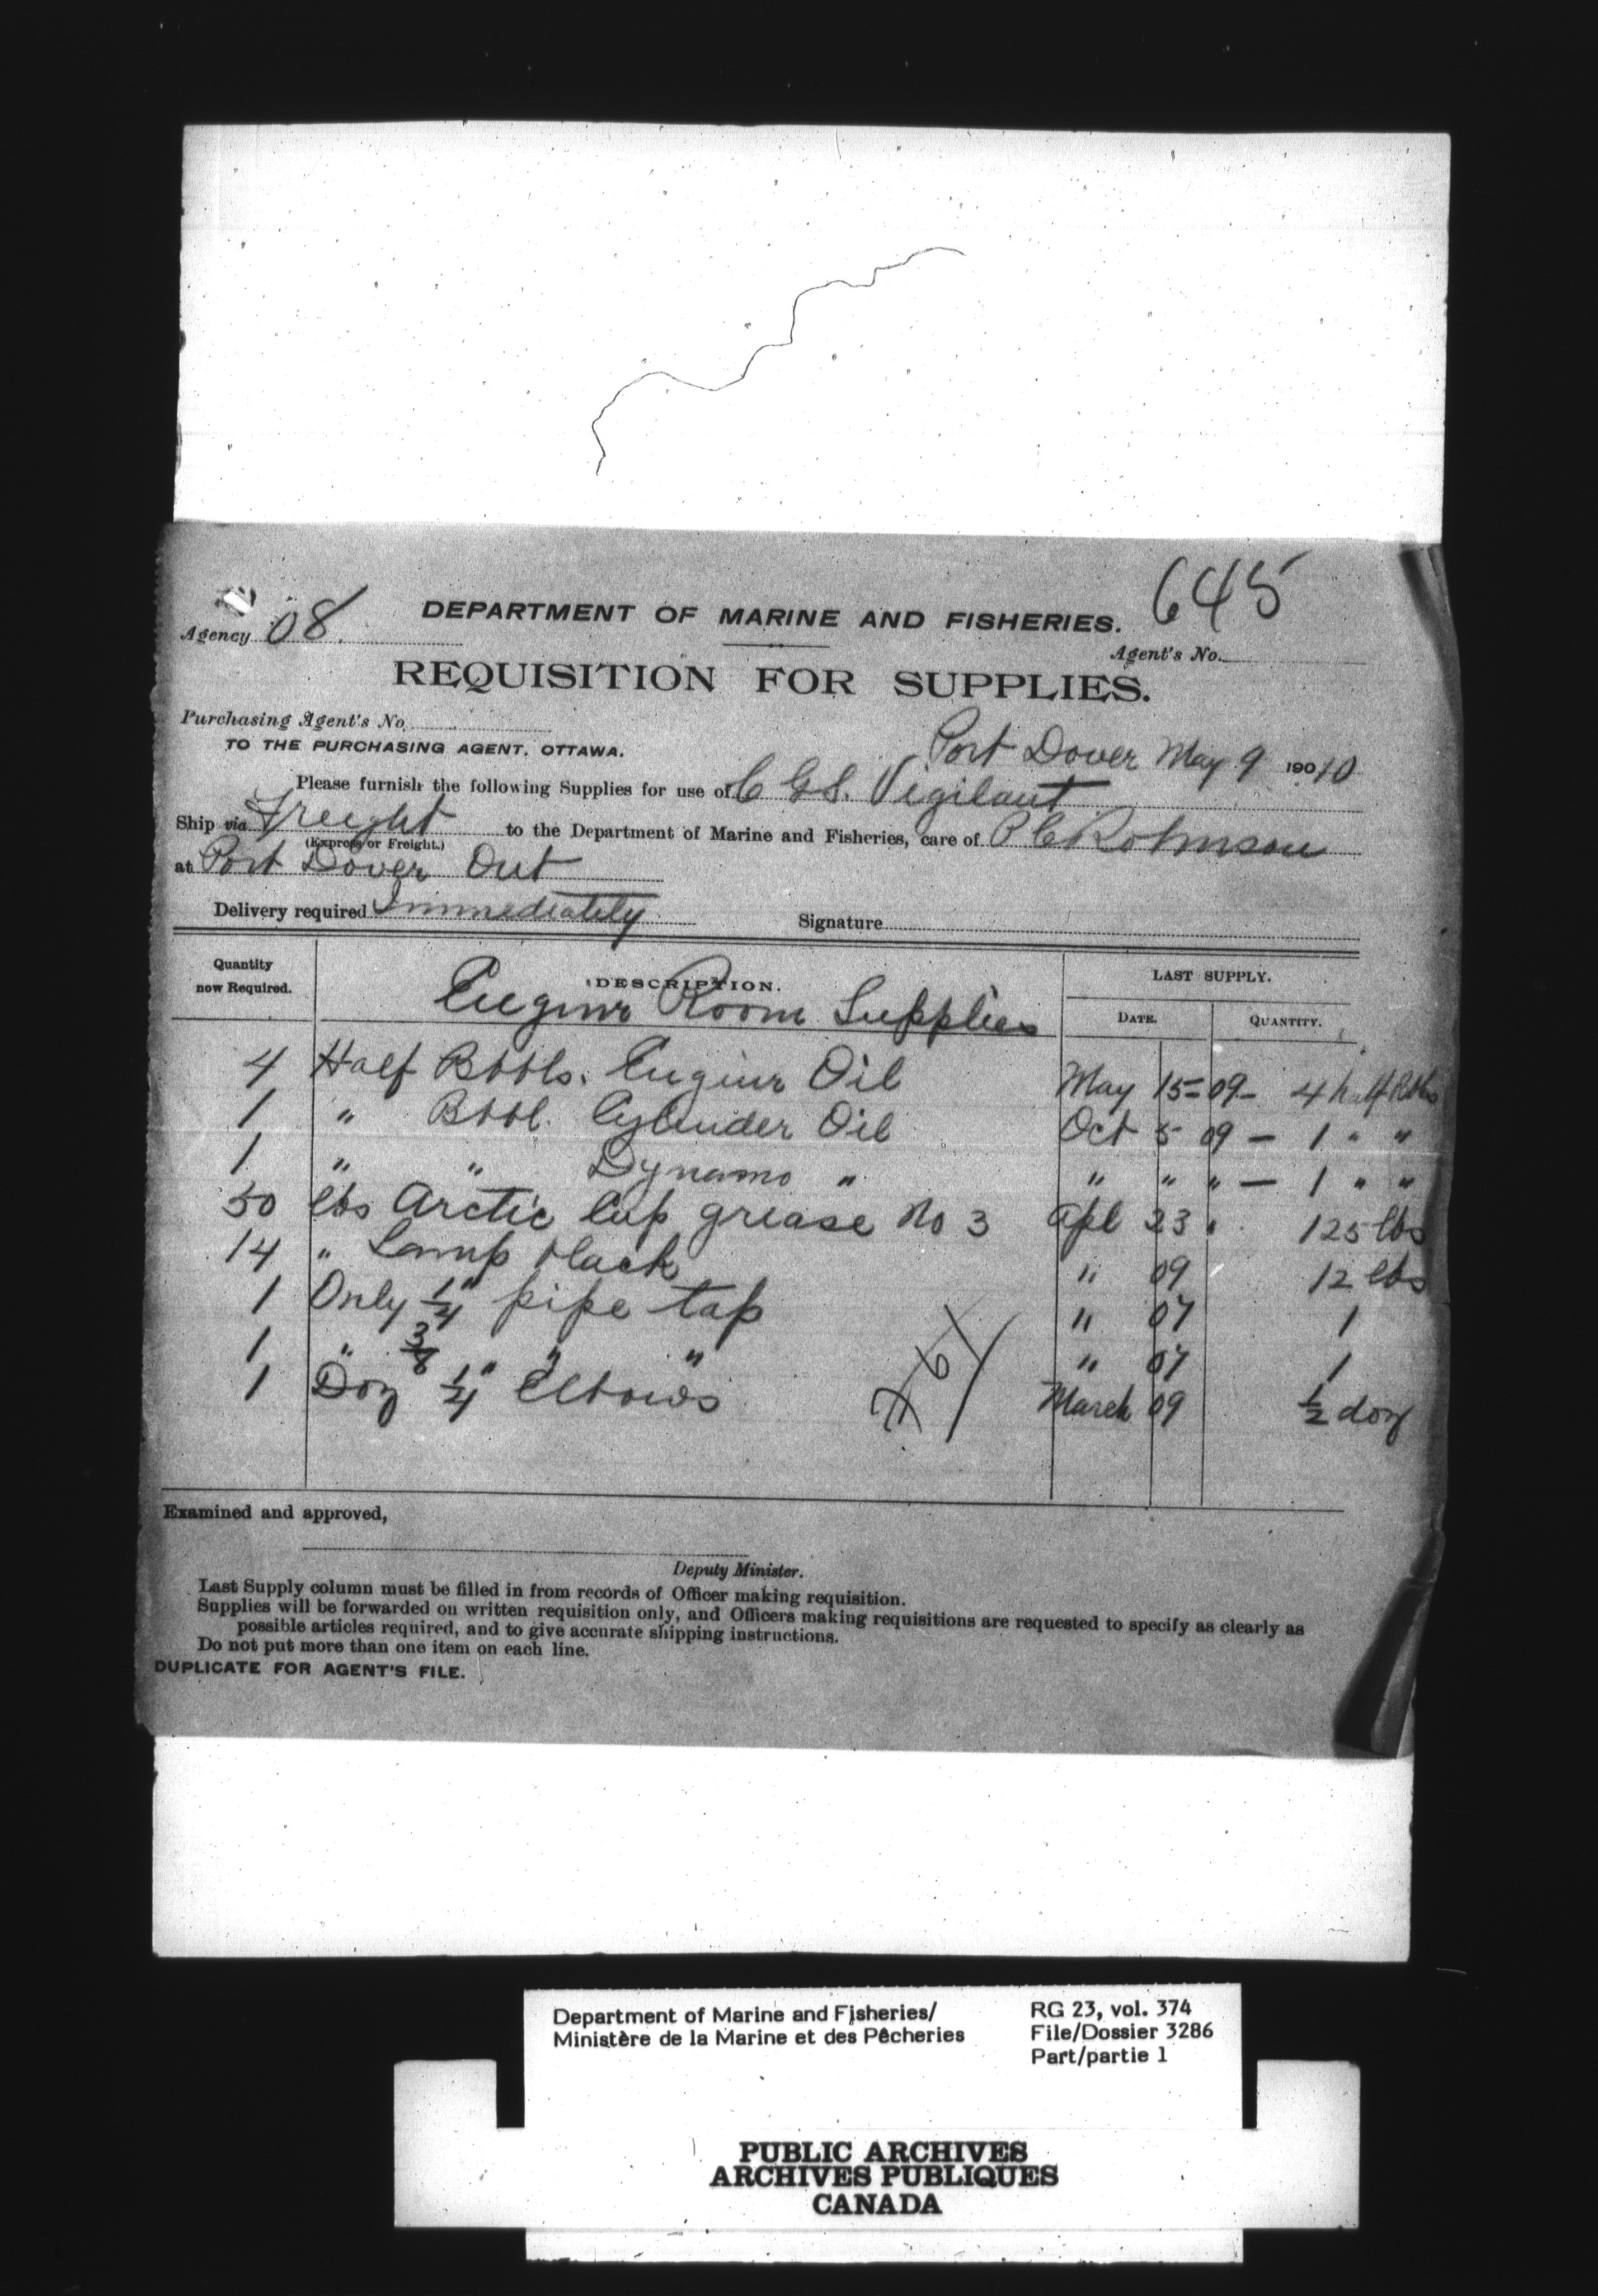 645
Agency 08.
DEPARTMENT OF MARINE AND FISHERIES.
Agent's No.
REQUISITION FOR SUPPLIES.
Purchasing Agent's No.
TO THE PURCHASING AGENT, OTTAWA.
Port Dover May 9 19010
Please furnish the following Supplies for use of C G S. Vigilant
Ship via Freight to the Department of Marine and Fisheries, care of P C Robinson
(Express or Freight.)
at Port Dover Ont
Delivery required Immediately Signature
Quantity now Required. DESCRIPTION. LAST SUPPLY.
Engine Room Supplies DATE. QUANTITY.
4 Half Bbbls. Engine Oil May 15=09- 4 half Bbls
1 " Bbbl. Cylinder Oil Oct 5 09 — 1 " "
1 " " Dynamo " " " " — 1 " "
50 lbs Arctic Cup grease No 3 Apl 23 " 125 lbs
14 " Lamp black " 09 12 lbs
1 Only 1/4" pipe tap " 07 1
1 " 3/8 " " " 07 1
1 Doz 1/4" Elbows March 09 1/2 doz
Examined and approved,
Deputy Minister.
Last Supply column must be filled in from records of Officer making requisition.
Supplies will be forwarded on written requisition only, and Officers making requisitions are requested to specify as clearly as
possible articles required, and to give accurate shipping instructions.
Do not put more than one item on each line.
DUPLICATE FOR AGENT'S FILE.
Department of Marine and Fisheries/ RG 23, vol. 374
Ministère de la Marine et des Pêcheries File/Dossier 3286
Part/partie 1
PUBLIC ARCHIVES
ARCHIVES PUBLIQUES
CANADA